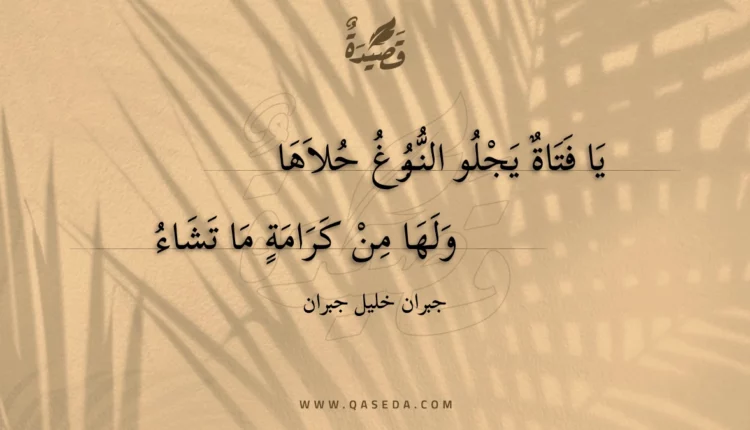 قَصِيْدَةٌ
يَا فَتَاةٌ يَجْلُو النُّبُوْغُ حُلاَهَا
وَلَهَا مِنْ كَرَامَةٍ مَا تَشَاءُ
جبران خليل جبران
WWW.QASEDA.COM